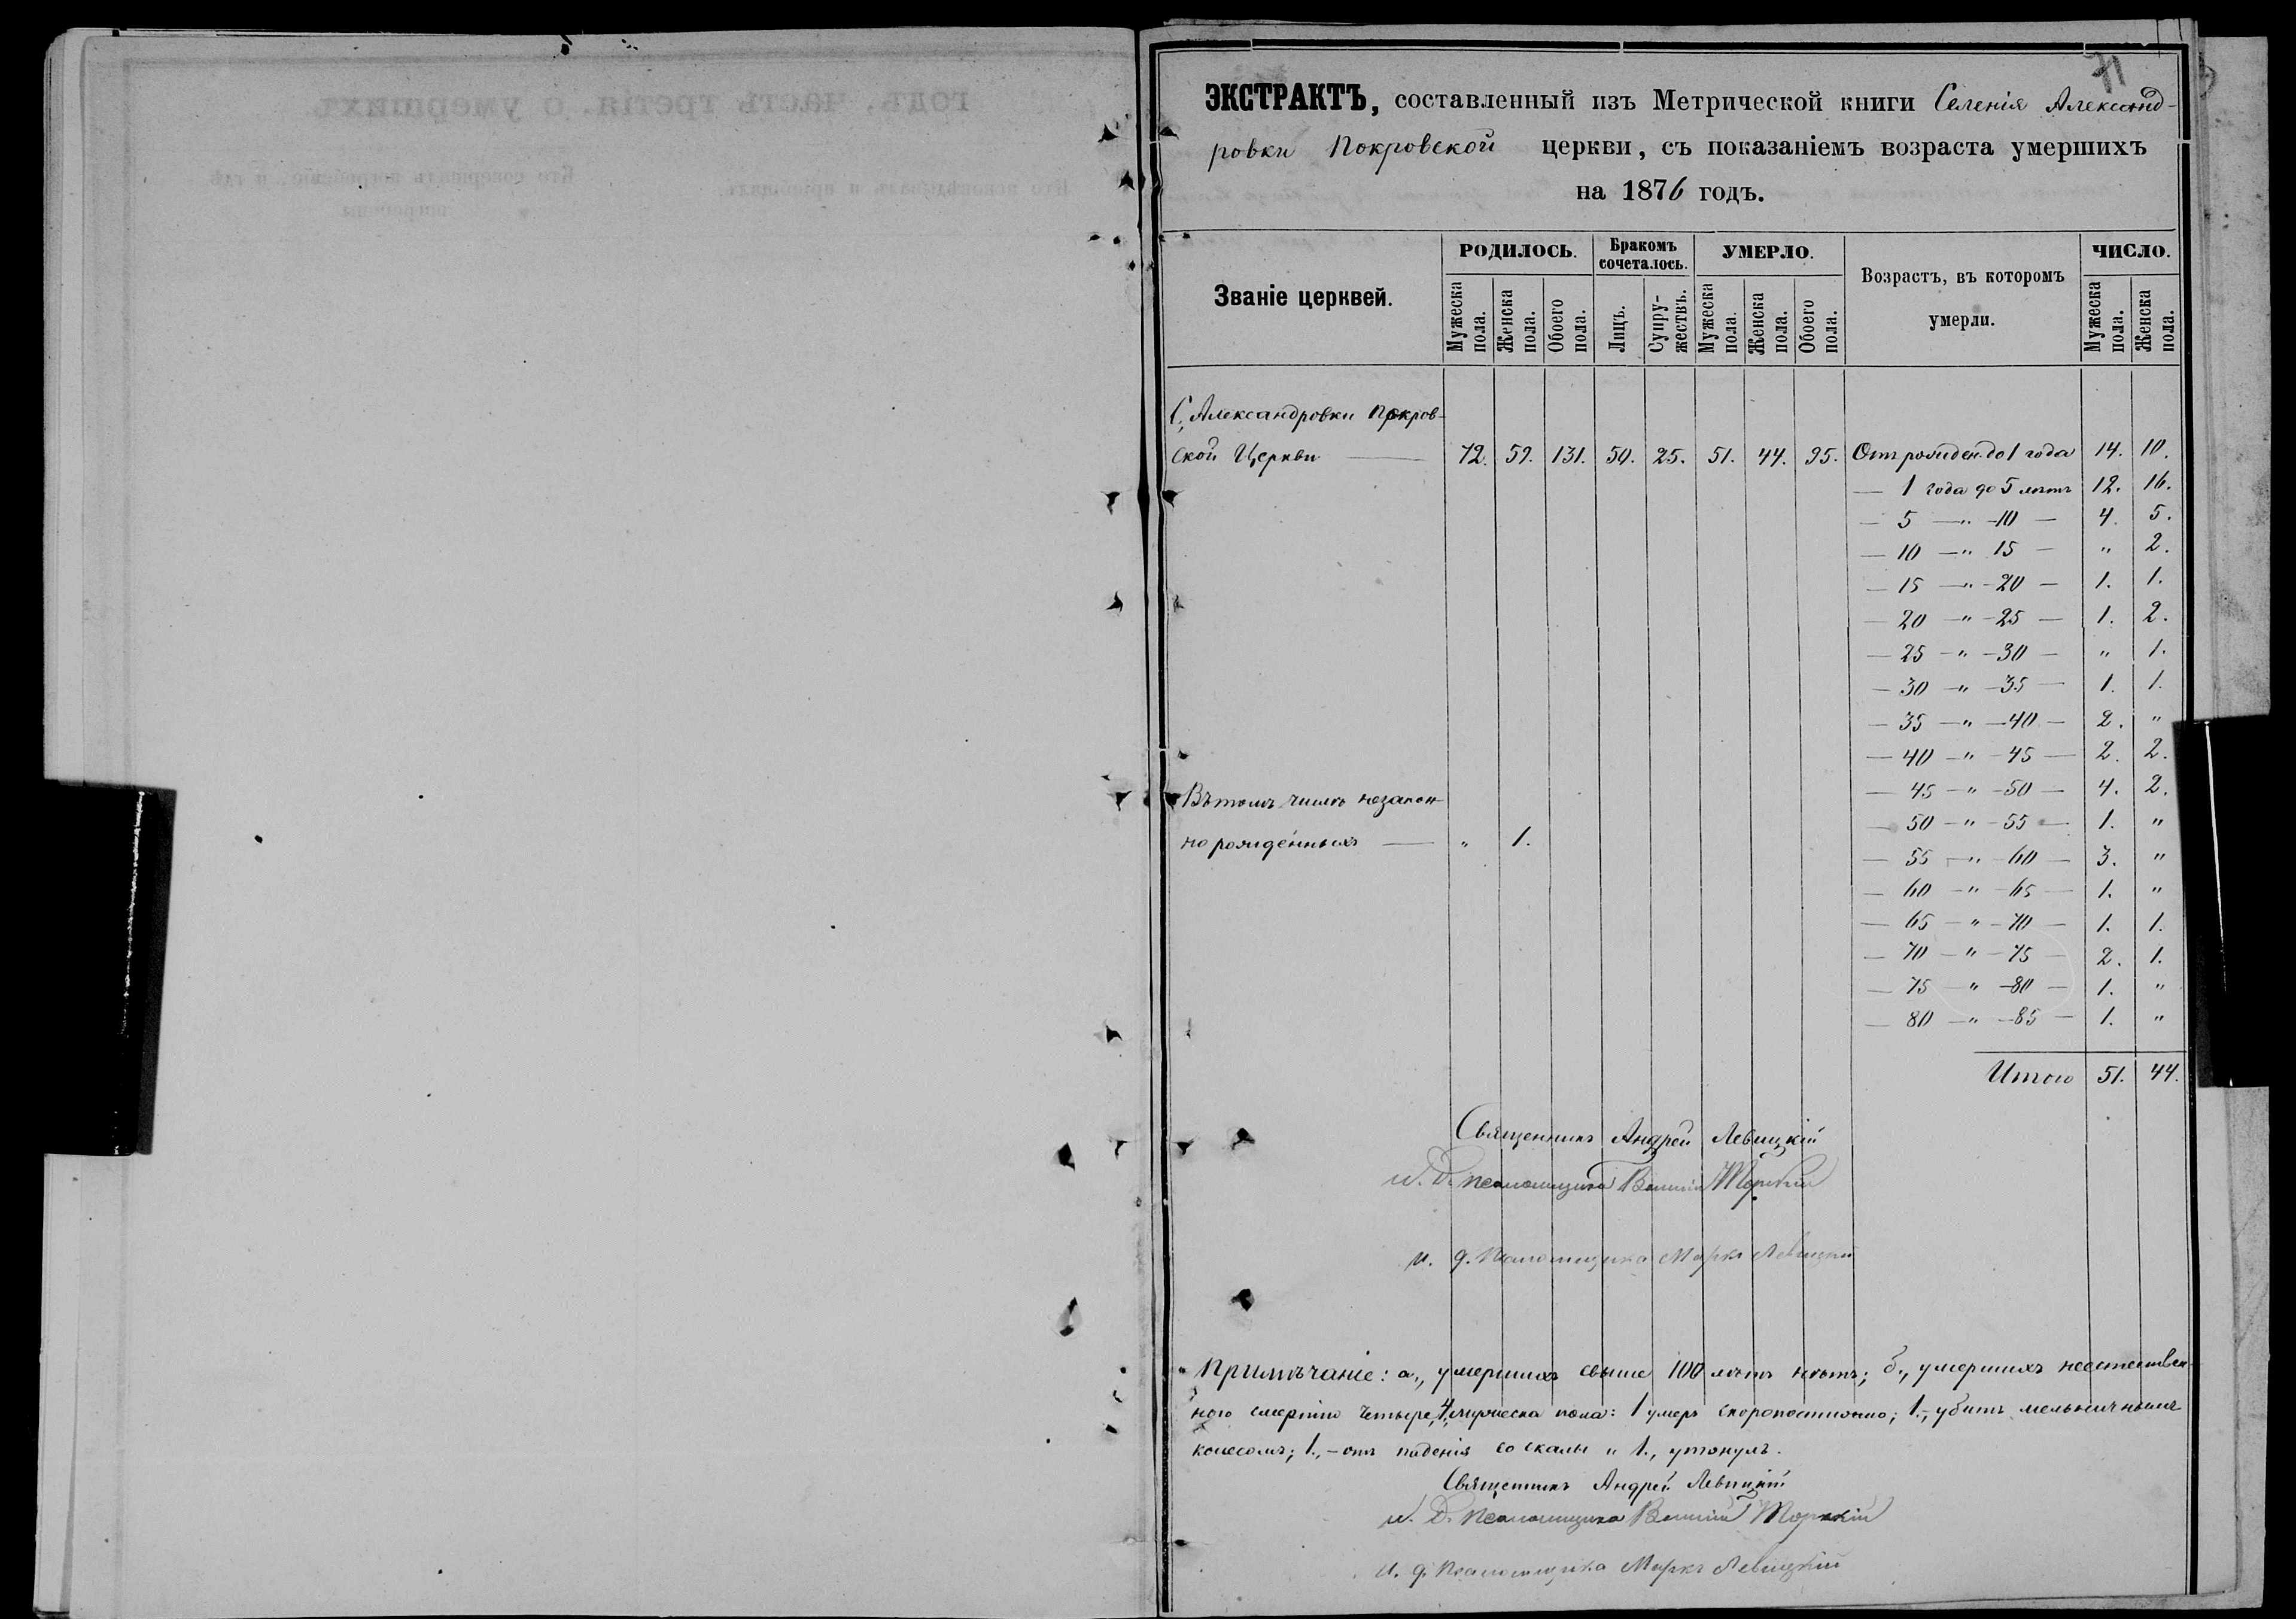 71
ЭКСТРАКТЪ, составленный изъ Метрической книги Селенія Александ-
ровки Покровской церкви, съ показаніемъ возраста умершихъ
на 1876 годъ.
Званіе церквей.
РОДИЛОСЬ.
Бракомъ сочеталось.
УМЕРЛО.
Возрастъ, въ которомъ умерли.
ЧИСЛО.
Мужеска пола.
Женска пола.
Обоего пола.
Лицъ.
Супружествъ.
Мужеска пола.
Женска пола.
Обоего пола.
Мужеска пола.
Женска пола.
С. Александровки Покров-
ской Церкви — 72. 59. 131. 50. 25. 51. 44. 95. Отъ рожден. до 1 года 14. 10.
— 1 года до 5 лѣтъ 12. 16.
— 5 — " — 10 — 4. 5.
— 10 — " 15 — " 2.
— 15 — " — 20 — 1. 1.
— 20 — " — 25 — 1. 2.
— 25 — " — 30 — " 1.
— 30 — " — 35 — 1. 1.
— 35 — " — 40 — 2. "
— 40 — " — 45 — 2. 2.
— 45 — " — 50 — 4. 2.
— 50 — " — 55 — 1. "
— 55 — " — 60 — 3. "
— 60 — " — 65 — 1. "
— 65 — " — 70 — 1. 1.
— 70 — " — 75 — 2. 1.
— 75 — " — 80 — 1. "
— 80 — " — 85 — 1. "
Въ томъ числѣ незакон-
но рожденныхъ — " 1.
Итого 51. 44.
Священникъ Андрей Левицкій
И. д. псаломщика Торскій
и. д. Псаломщика Маркъ Левицкій
Примѣчаніе: а., умершихъ свыше 100 лѣтъ нѣтъ; б., умершихъ неестествен-
ною смертію четыре, 4, мужеска пола: 1 умеръ скоропостижно; 1., убитъ мельничнымъ
колесомъ; 1., — отъ паденія со скалы и 1., утонулъ.
Священникъ Андрей Левицкій
И. д. Псаломщика Торскій
и. д. Псаломщика Маркъ Левицкій